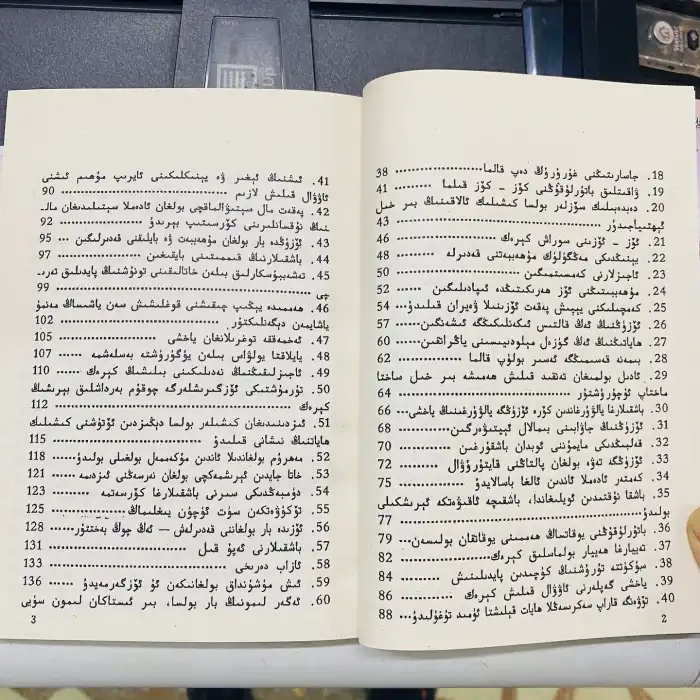 18. جاسارىتىڭنى غۇرۇرۇڭ دەپ قالما ............ 38
19. ۋاقىتلىق باتۇرلۇقۇڭنى كۆز - كۆز قىلما ........ 41
20. دەبدەبىلىك سۆزلەر بولسا كىشىلىك ئالاقىنىڭ بىر خىل
ئېھتىياجىدۇر ............ 43
21. ئۆز - ئۆزىنى سوراش كېرەك ............ 46
22. يېنىڭدىكى مەڭگۈلۈك مۇھەببەتنى قەدىرلە ........ 48
23. ئاجىزلارنى كەمسىتمىگىن ............ 50
24. مۇھەببىتىڭنى ئۆز ھەرىكىتىڭدە ئىپادىلىگىن ...... 52
25. كەمچىلىكنى يېپىش پەقەت ئۆزىنىلا ۋەيران قىلىدۇ... 54
26. ئۆزۈڭنىڭ ئەڭ قالتىس ئىكەنلىكىڭگە ئىشەنگىن... 57
27. ھاياتىڭنىڭ ئەڭ گۈزەل مېلودىيىسىنى ياڭراتقىن... 60
28. بىمەنە قەسىمىڭگە ئەسىر بولۇپ قالما ........ 62
29. ئادىل بولمىغان تەنقىد قىلىش ھەمىشە بىر خىل ساختا
ماختاپ ئۇچۇرۇشتۇر ............ 64
30. باشقىلارغا يالۋۇرغاندىن كۆرە ئۆزۈڭگە يالۋۇرغىنىڭ ياخشى... 66
31. ئۆزۈڭنىڭ جاۋابىنى بىمالال ئېيتىۋەرگىن ...... 68
32. قەلبىڭدىكى مايمۇننى ئوبدان باشقۇرغىن ........ 70
33. ئۆزۈڭگە تەۋە بولغان پالتاڭنى قايتۇرۇۋال ...... 72
34. كەمتەر ئادەملا ئاندىن ئالغا باسالايدۇ ........ 75
35. باشقا نۇقتىدىن ئويلىغاندا، باشقىچە ئاقىۋەتكە ئېرىشكىلى
بولىدۇ ............ 77
36. باتۇرلۇقۇڭنى يوقاتساڭ ھەممىنى يوقاتقان بولىسەن... 79
37. تەييارغا ھەييار بولماسلىق كېرەك ........ 82
38. سۈكۈتتە تۇرۇشنىڭ كۈچىدىن پايدىلىنىش ...... 84
39. ياخشى گەپلەرنى ئاۋۋال قىلىش كېرەك ........ 86
40. تۆۋەنگە قاراپ سەكرىسەڭلا ھايات قېلىشتا ئۈمىد تۇغۇلىدۇ... 88
2
41. ئىشنىڭ ئېغىر ۋە يېنىكلىكىنى ئايرىپ مۇھىم ئىشنى
ئاۋۋال قىلىش لازىم ............ 90
42. پەقەت مال سېتىۋالماقچى بولغان ئادەملا سېتىلىدىغان مال-
نىڭ نۇقسانلىرىنى كۆرسىتىپ بېرىدۇ ........ 92
43. ئۆزۈڭدە بار بولغان مۇھەببەت ۋە بايلىقنى قەدىرلىگىن ... 95
44. باشقىلارنىڭ قىممىتىنى بايقىغىن ........ 97
45. تەشەببۇسكارلىق بىلەن خاتالىقىنى تونۇشنىڭ پايدىلىق تەرى-
پى ............ 99
46. ھەممىدە يېڭىپ چىقىشنى قوغلىشىش سەن ياشىساڭ مەنمۇ
ياشايمەن دېگەنلىكتۇر ............ 102
47. ئەخمەققە توغرىلانغان ياخشى ............ 105
48. يايلاقتا يولۋاس بىلەن يۈگۈرۈشتە بەسلەشمە ...... 107
49. ئاجىزلىقىڭنىڭ نەدىلىكىنى بىلىشىڭ كېرەك ...... 110
50. تۇرمۇشتىكى ئۆزگىرىشلەرگە چوقۇم بەرداشلىق بېرىشىڭ
كېرەك ............ 112
51. ئىزدىنىدىغان كىشىلەر بولسا دېڭىزدىن ئۆتۈشنى كىشىلىك
ھاياتنىڭ نىشانى قىلىدۇ ............ 115
52. مەھرۇم بولغاندىلا ئاندىن مۇكەممەل بولغىلى بولىدۇ... 118
53. خاتا جايدىن ئېرىشمەكچى بولغان نەرسەڭنى ئىزدىمە ... 121
54. دۈمبەڭدىكى سىرنى باشقىلارغا كۆرسەتمە ...... 123
55. تۆكۈۋەتكەن سۈت ئۈچۈن يىغلىماڭ ........ 125
56. ئۆزىدە بار بولغاننى قەدىرلەش — ئەڭ چوڭ بەختتۇر... 128
57. باشقىلارنى ئەپۇ قىل ............ 131
58. ئازاب دەرىخى ............ 133
59. ئىش مۇشۇنداق بولغانىكەن ئۇ ئۆزگەرمەيدۇ ...... 136
60. ئەگەر لىمونىڭ بار بولسا، بىر ئىستاكان لىمون سۈيى
3